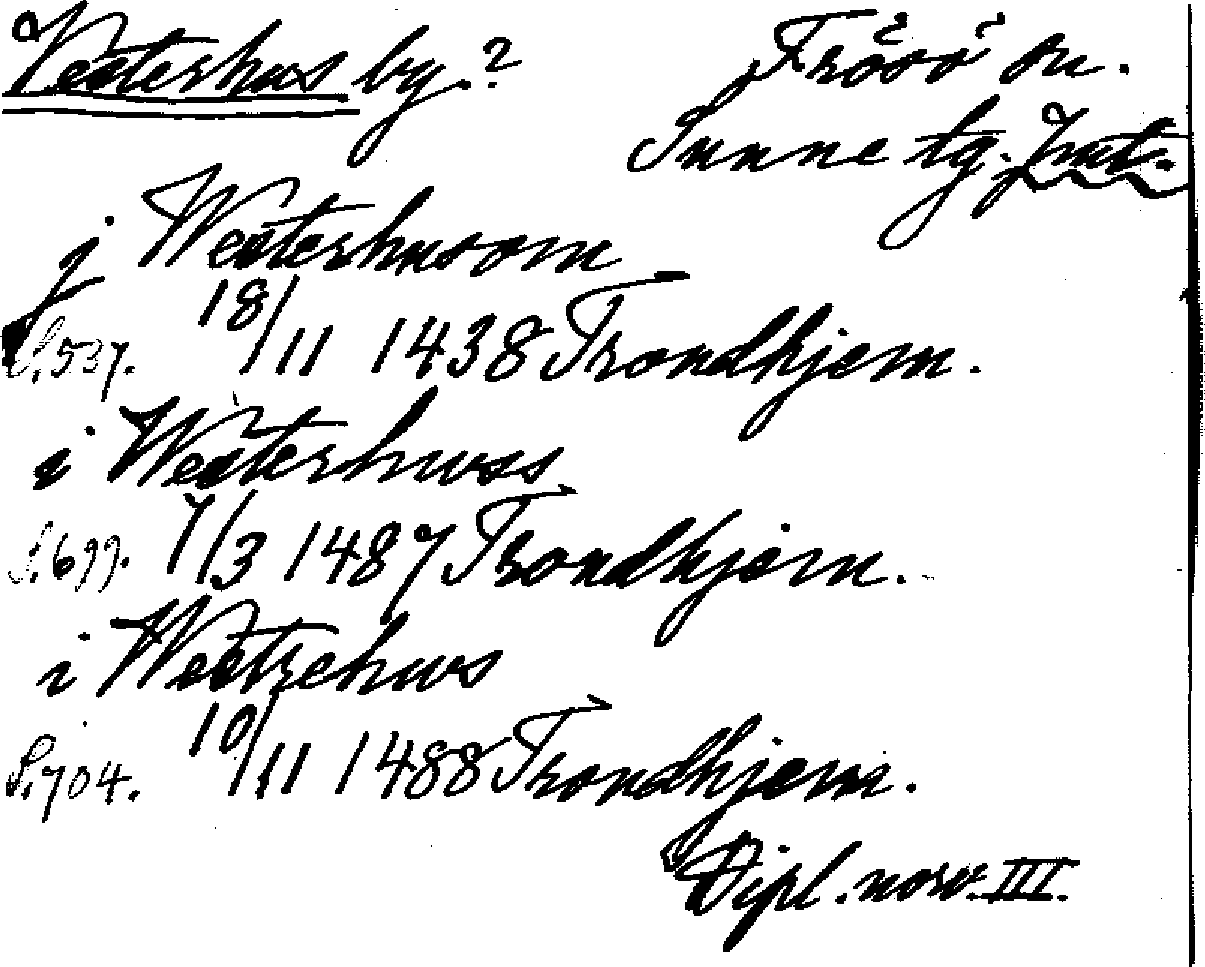 Västerhus by.? Frösö sn.
Sunne tg. Jmt.
j Westerhusom
S.537. 18/11 1438 Trondhjem.
i Westerhwss
S.699. 7/3 1487 Trondhjem.
i Westrehws
S.704. 10/11 1488 Trondhjem.
Dipl. norv. III.